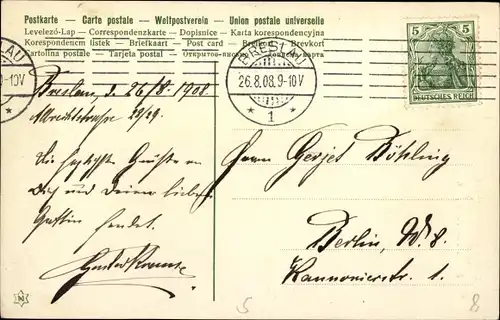 Postkarte - Carte postale - Weltpostverein - Union postale universelle
Levelező-Lap - Correspondenzkarte - Dopisnice - Karta korespondencyjna
Korespondenční lístek - Briefkaart - Post card - Brefkort - Brevkort
Cartolina postale - Tarjeta postal
BRESLAU
26.8.08.9-10V
* 1 *
LAU
-10V
5 5
DEUTSCHES REICH
Breslau, d. 26/8. 1908.
Albrechtstrasse 28/29.
Die herzlichsten Grüße an
Dich und Deine liebe
Gattin sendet
Gustav Krause
Herrn Gerjet Böhling
Berlin, W. 8.
Kanonierstr. 1.
5
8